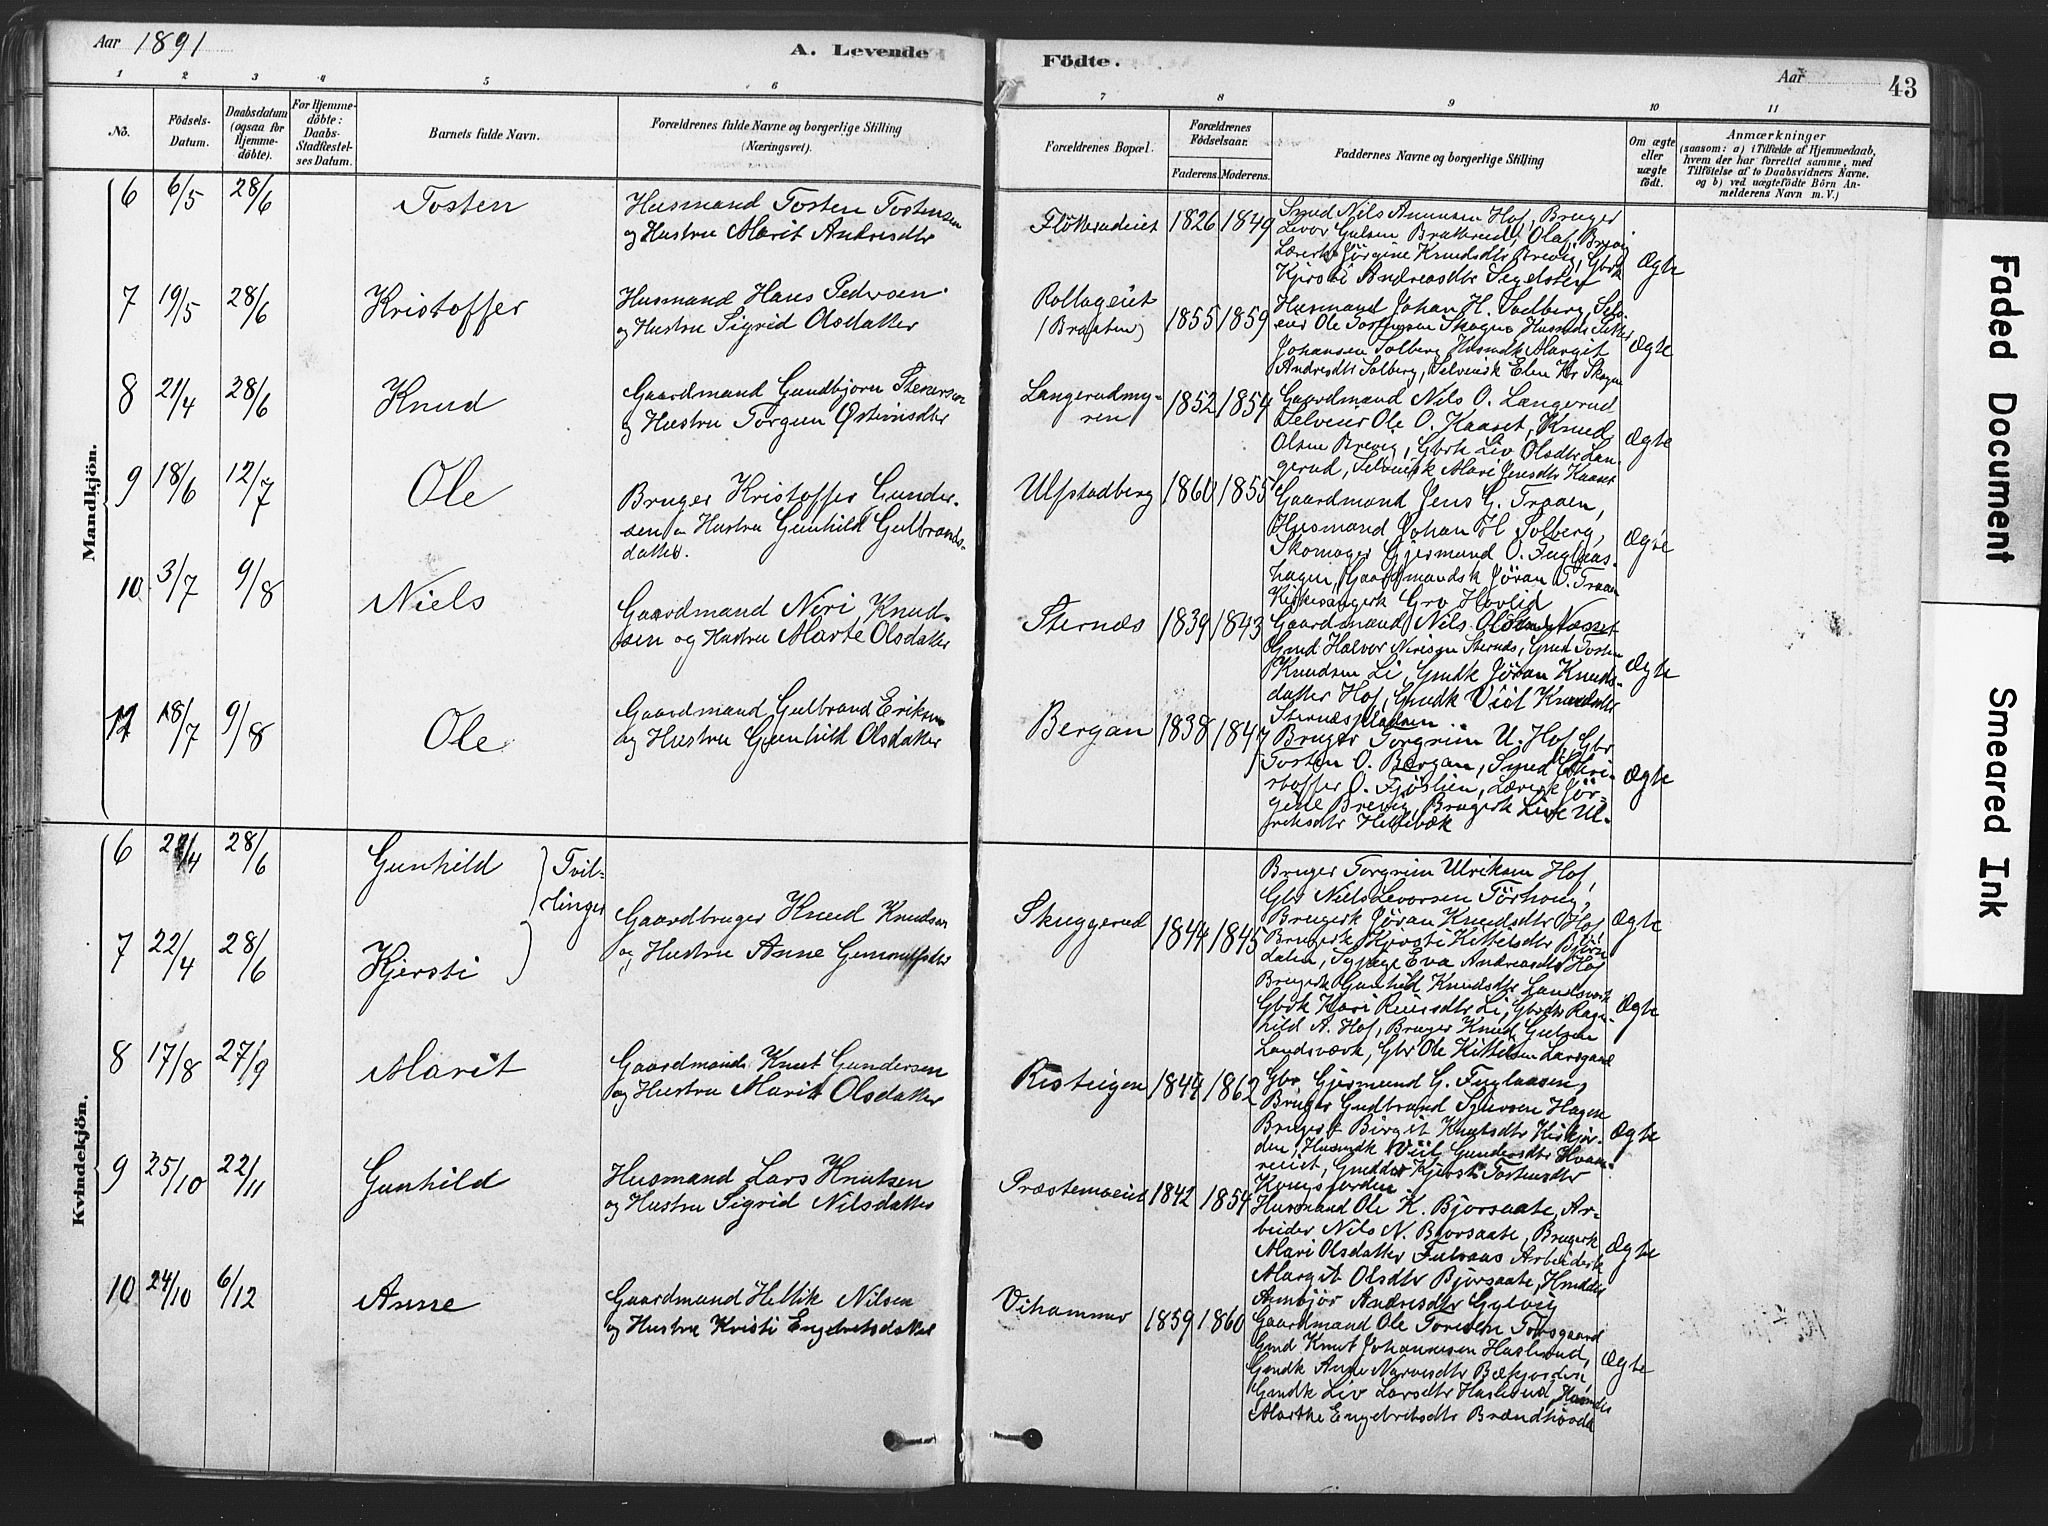 Aar 1891
A. Levende
Födte.
Aar
43
1 2 3 4 5 6 7 8 9 10 11
No.
Födsels-
Datum.
Daabsdatum
(ogsaa for
Hjemme-
döbte).
For Hjemme-
döbte:
Daabs-
Stadfæstel-
ses Datum.
Barnets fulde Navn.
Forældrenes fulde Navne og borgerlige Stilling
(Næringsvei).
Forældrenes Bopæl.
Forældrenes
Födselsaar.
Faderens. Moderens.
Faddernes Navne og borgerlige Stilling
Om ægte
eller
uægte
födt.
Anmærkninger
(saasom: a) i Tilfælde af Hjemmedaab,
hvem der har forrettet samme, med
Tilföielse af to Daabsvidners Navne.
og b) ved uægtefödte Börn An-
melderens Navn m. V.)
Mandkjön.
6 6/5 28/6 Tosten
Husmand Tosten Tostensen
og Hustru Marit Andresdtr
1826 1849
Smed Nils Amunsen Hof, Bruger
Levor Gulsen Bratterud, Olaf Brevig
Lærerk Jørgine Knudsdtr Brevig, Gbrk
Kjersti Andreasdtr
Ægte
7 19/5 28/6 Kristoffer
Husmand Hans Pedersen
og Hustru Sigrid Olsdatter
Rollageiet
(Braaten)
1855 1859
Husmand Johan H. Solberg, Selv-
eier Ole Skogen
Johansen Solberg, Husmdk Margit
Andresdtr Solberg, Selveierk Elen Skogen
Ægte
8 21/4 28/6 Knud
Gaardmand Gundbjørn Stenersen
og Hustru Torgun Østensdtr
Langerudmy-
ren
1852 1854
Gaardmand Nils O. Langerud
Selveier Ole O. Kaaset, Knud
Olsen Brevig, Gbrk Liv Olsdtr Lan-
gerud, Selveierk Mari Jensdtr Kaaset
Ægte
9 18/6 12/7 Ole
Bruger Kristoffer Gunder-
sen og Hustru Gunhild Gulbrands-
datter.
Ulfstadberg
1860 1855
Gaardmand Jens G. Traaen,
Husmand Johan H Solberg,
Skomager Gjermund O. Fuglaas-
hagen, Gaardmandsk Jøran O. Traaen
Kirkesangerk Gro Hovlid
Ægte
10 3/7 9/8 Niels
Gaardmand Neri Knud-
sen og Hustru Marte Olsdatter
Sternæs
1839 1843
Gaardmand Nils Olsen Næsset
Gmd Halvor Nirisen Sternæs, Gmd Tosten
Knudsen Li, Gmdk Jøran Knuds-
datter Hof, Gmdk Viel Knudsdtr
Sternæspladsen
Ægte
11 18/7 9/8 Ole
Gaardmand Gulbrand Eriksen
og Hustru Gunhild Olsdatter
Bergan
1838 1847
Bruger Torgrim U. Hof, Gbr
Tosten O. Bergan, Smed Kri-
stoffer O. Fjøslien, Lærerk Jør-
gine Brevig, Brugerk Live Ul-
riksdtr Hellebæk
Ægte
Kvindekjön.
6 22/4 28/6 Gunhild
Tvil-
linger
7 22/4 28/6 Kjersti
Gaardbruger Knud Knudsen
og Hustru Anne
Skuggerud
1844 1845
Bruger Torgrim Ulriksen Hof,
Gbr Niels Levorsen Tørhoug,
Brugerk Jøran Knudsdtr Hof,
Brugerk Kjersti Kittelsdtr Bjørn-
dalen, Eva Andreasdtr Hof
Ægte
Brugerk Gunhild Knudsdtr Landsværk
Gbrk Kari Reiersdtr Li, Gbrdtr Ragn-
hild A. Hof, Bruger Knud Gulsen
Landsværk, Gbr Ole Kittelsen Larsgaard
Ægte
8 17/8 27/9 Marit
Gaardmand Knut Gundersen
og Hustru Marit Olsdatter
Risteigen
1844 1862
Gbr. Gjermund G. Fuglaasen,
Bruger Gudbrand Syversen Hagen
Brugerk Birgit Knutsdtr Kirkjor-
den, Husmdk Viil Gundersdtr
Gmddtr Kjersti Tostensdtr
Kongsjorden
Ægte
9 25/10 22/11 Gunhild
Husmand Lars Knutsen
og Hustru Sigrid Nilsdatter
Præstemoeiet
1842 1854
Husmand Ole K. Bjørsaate, Ar-
beider Nils N. Bjørsaate, Brugerk
Mari Olsdatter Fulsaas Arbeiderk
Margit Olsdtr Bjørsaate, Hmddtr
Annbjør Andresdtr Gylvig
Ægte
10 24/10 6/12 Anne
Gaardmand Hellik Nilsen
og Hustru Kristi Engebretsdatter
Vihammer
1859 1860
Gaardmand Ole Toresen Torsgaard
Gmd Knut Johannesen Haslerud,
Gmdk Anne Narvesdtr Bækjorden,
Gmdk Liv Larsdtr Haslerud,
Marthe Engebretsdtr Brændhovde
Ægte
Faded Document
Smeared Ink